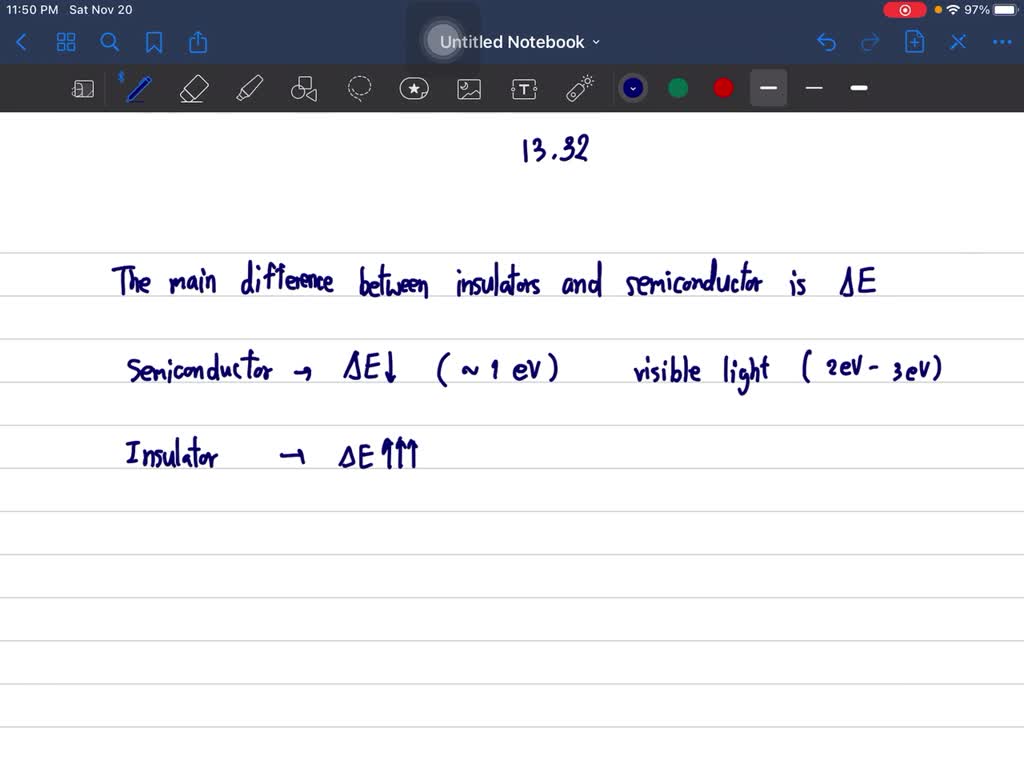 11:50 PM Sat Nov 20 97%
Untitled Notebook
13.32
The main difference between insulators and semiconductor is ΔE
Semiconductor → ΔE↓ (~ 1 eV) visible light (2eV - 3eV)
Insulator → ΔE↑↑↑